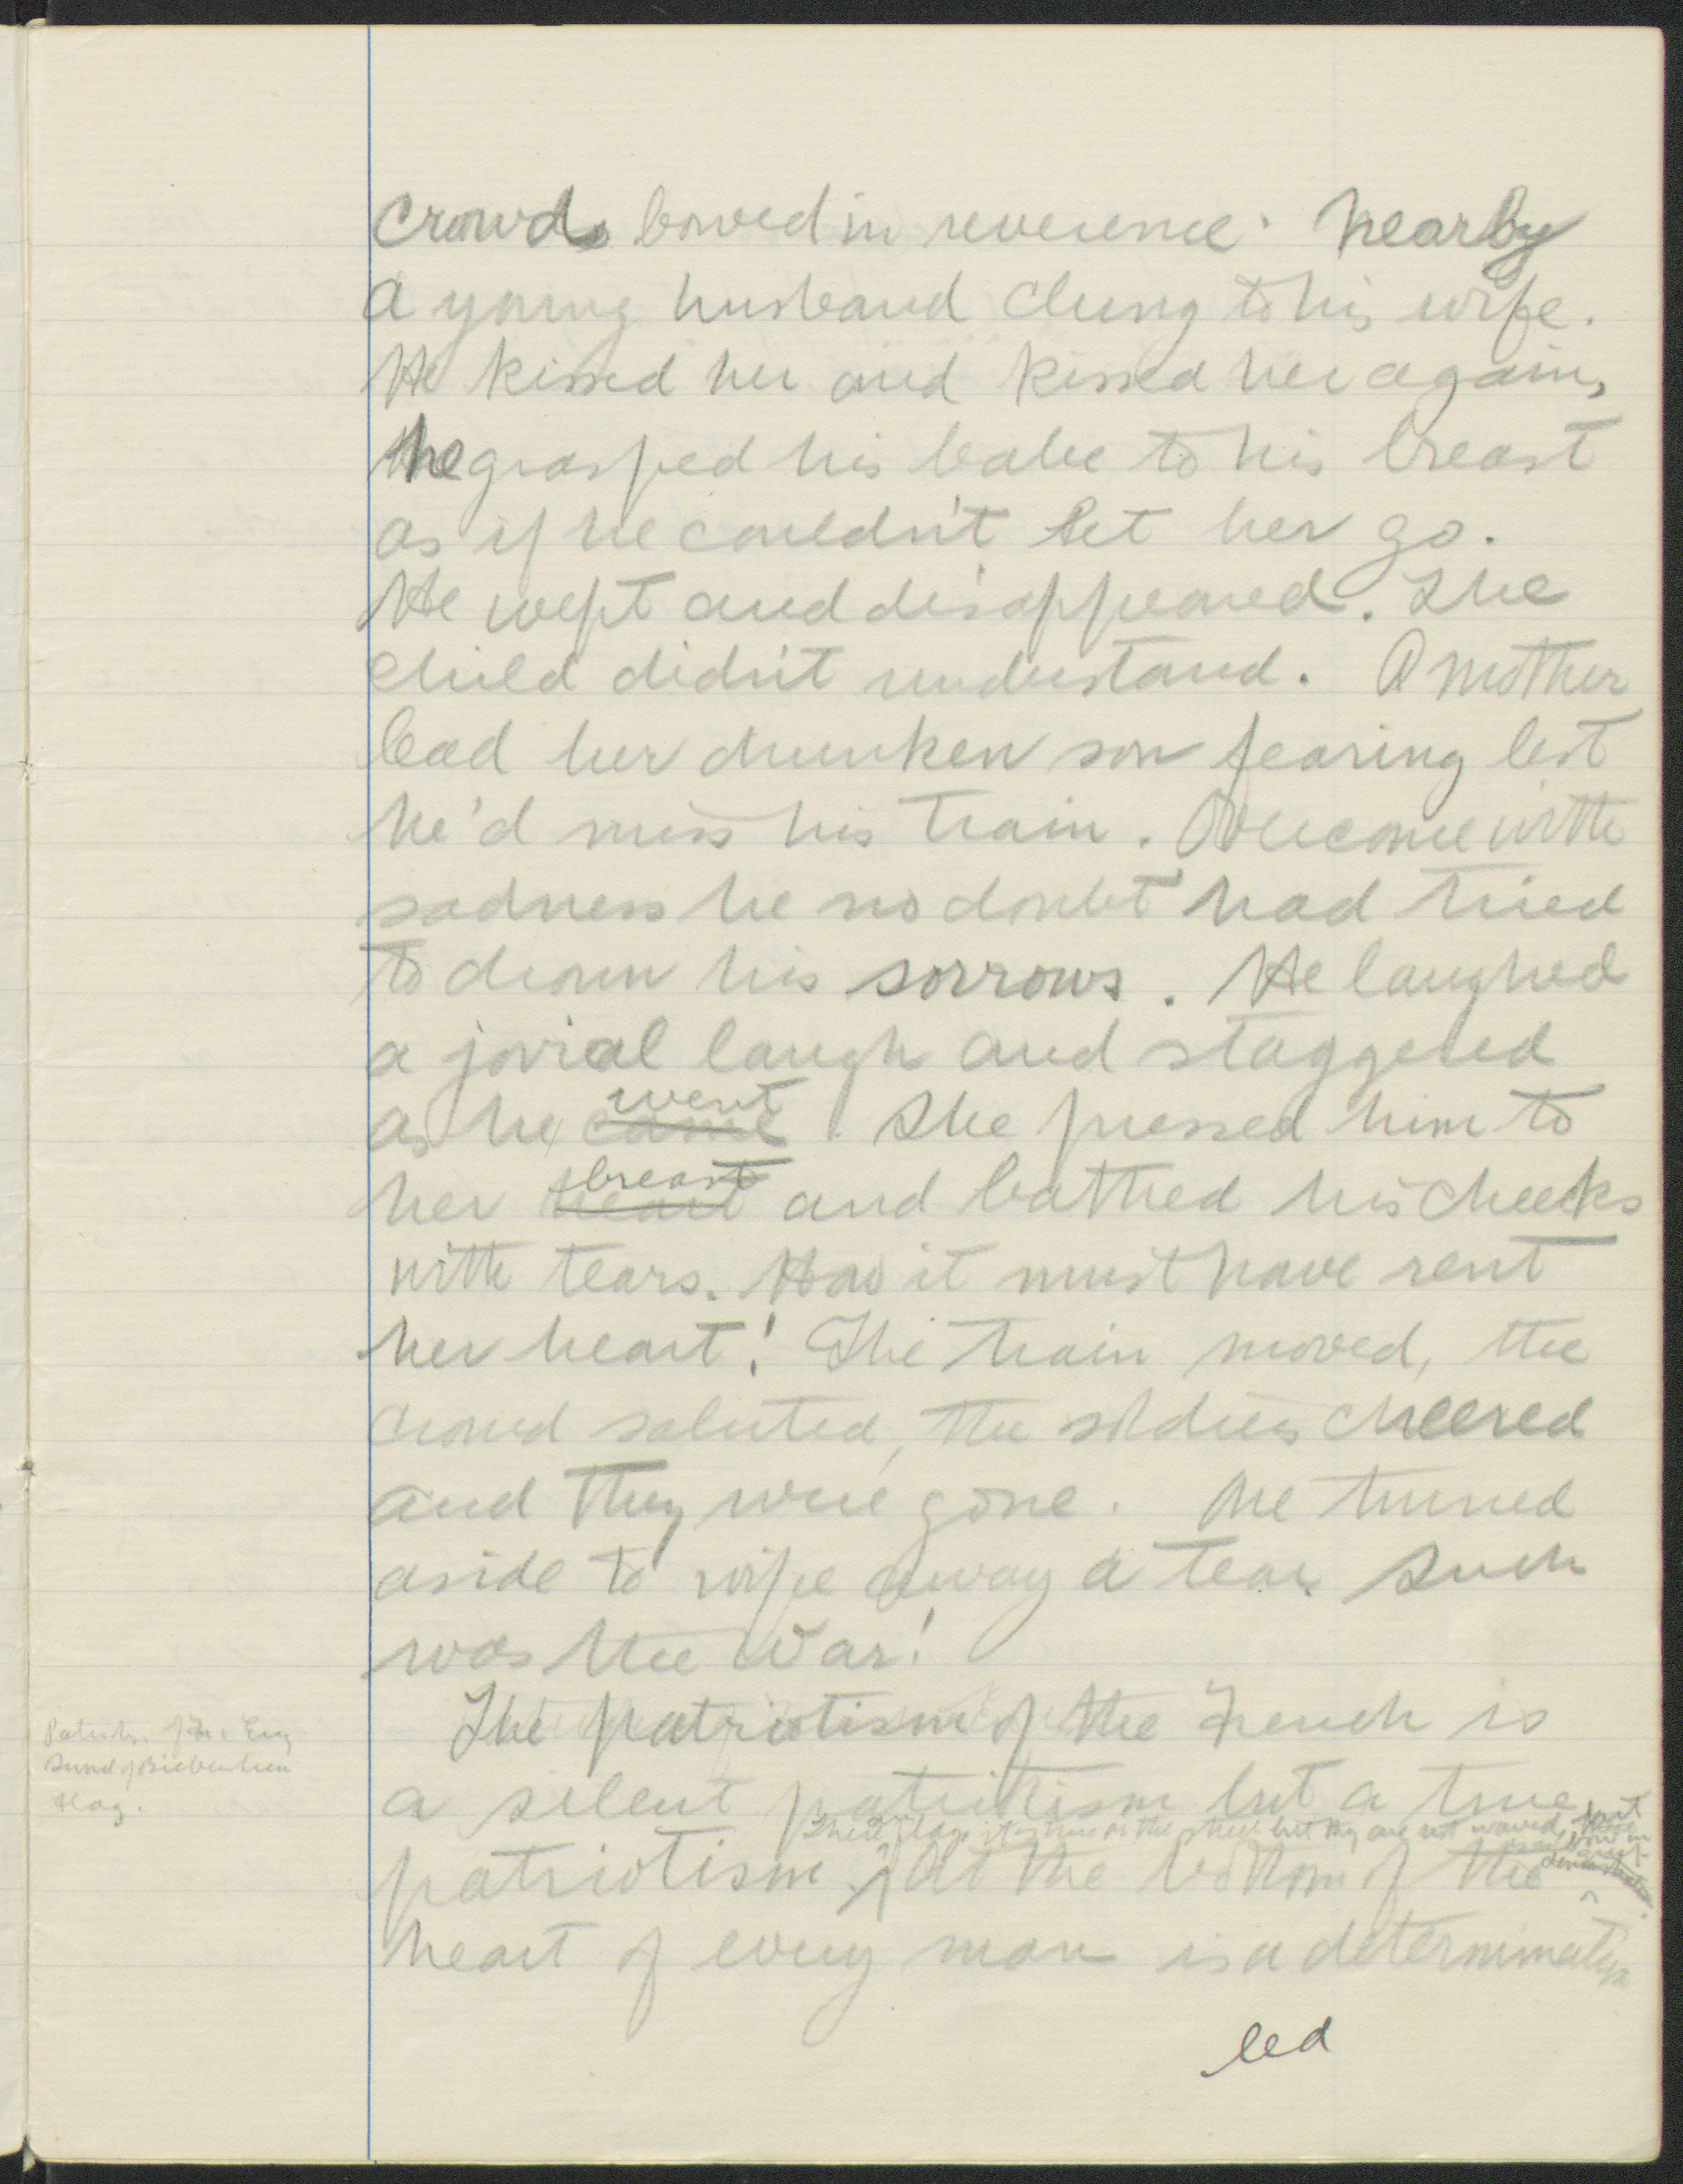 crowds bowed in reverence. Nearby
a young husband clung to his wife.
He kissed her and kissed her again,
he grasped his babe to his breast
as if he couldn't let her go.
He wept and disappeared. The
child didn't understand. A mother
lead her drunken son fearing lest
he'd miss his train. Overcome with
sadness he no doubt had tried
to drown his sorrows. He laughed
a jovial laugh and staggered
went
as he came. She pressed him to
breast
her heart and bathed his cheeks
with tears. How it must have rent
her heart! The train moved, the
crowd saluted, the soldiers cheered
and they were gone. We turned
aside to wipe away a tear. Such
was the War!
The patriotism of the French is
a silent patriotism but a true
There are flags in the but they are not waved,
patriotism. At the bottom of the
heart of every man is a determination
led
Eng
flag.